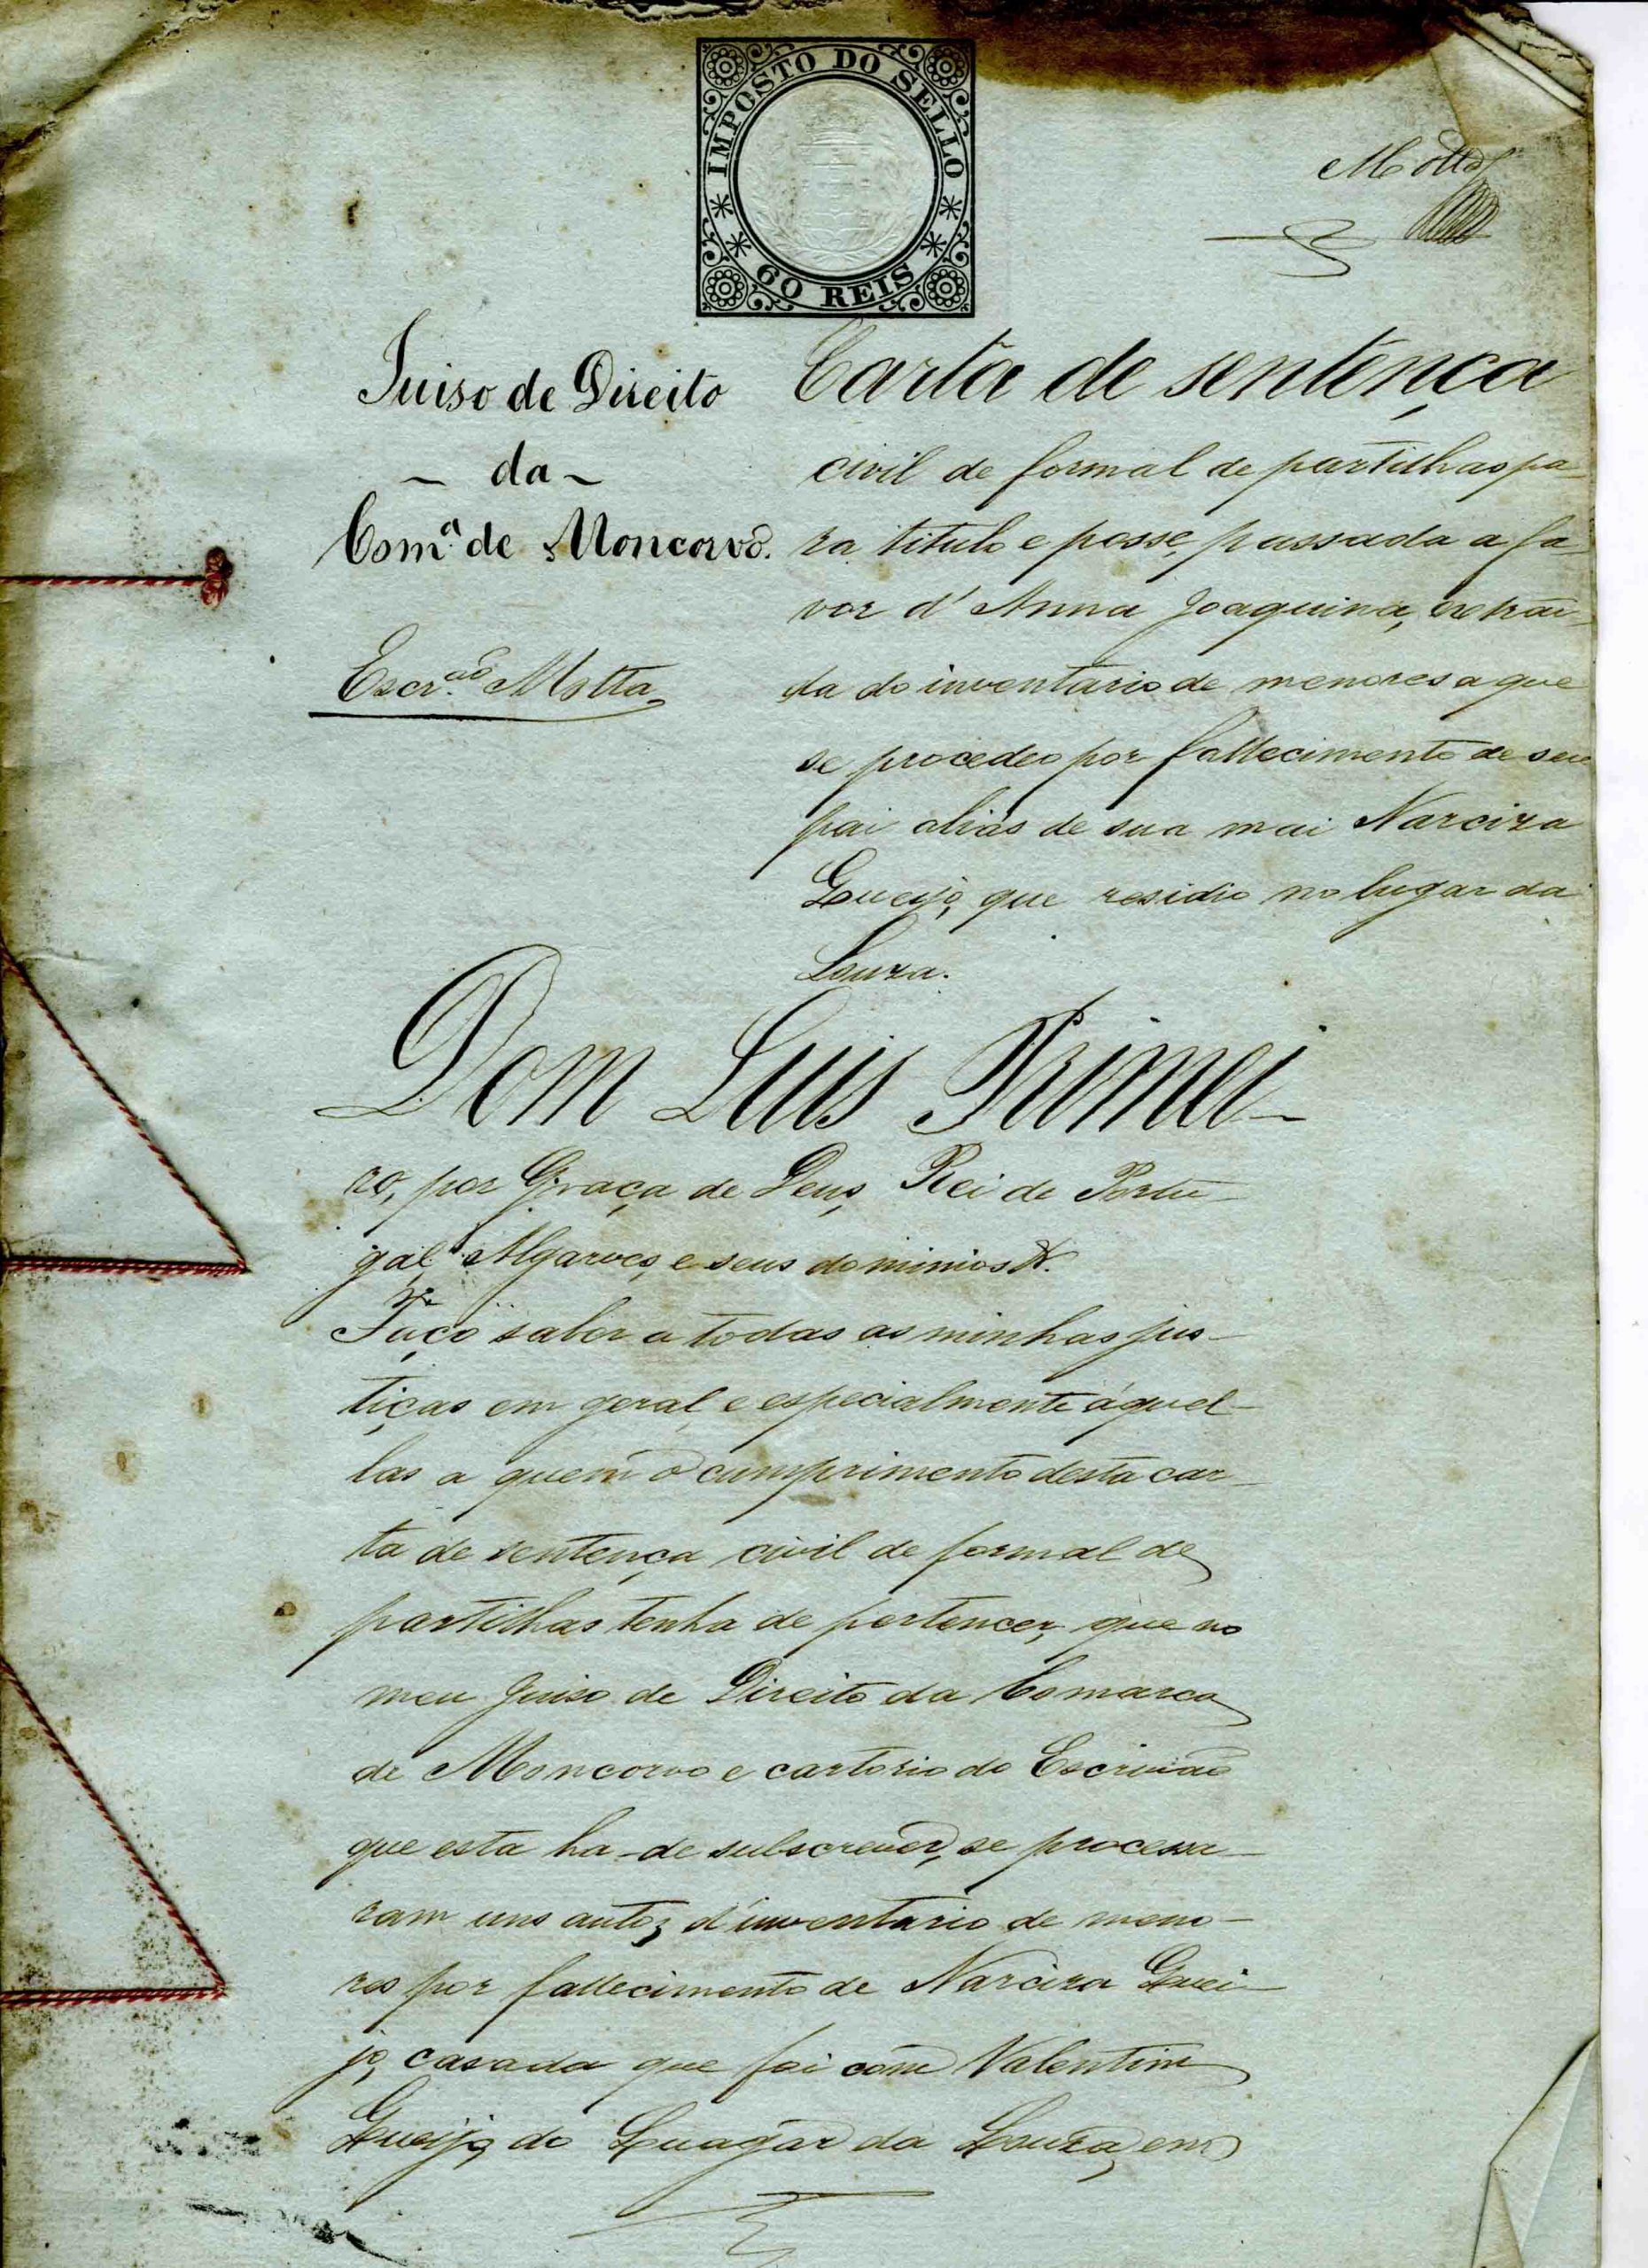 IMPOSTO DO SELLO
60 REIS
Motta
Juiso de Direito
da
Com.ª de Moncorvo.
Escr.ªº Motta
Carta de sentença
civil de formal de partilhas pa
ra titulo e posse, passada a fa
vor d'Anna Joaquina, extrai
da do inventario de menores a que
se procedeo por fallecimento de seu
pai aliás de sua mai Narciza
Queijo, que residio no lugar da
Louza.
Dom Luis Primei-
ro, por Graça de Deus, Rei de Portu-
gal Algarves, e seus dominios &.
Faço saber a todas as minhas jus-
tiças em geral, e especialmente áquel-
las a quem o cumprimento desta car-
ta de sentença civil de formal de
partilhas tenha de pertencer, que no
meu Juiso de Direito da Comarca
de Moncorvo e cartorio do Escrivão
que esta ha-de subscrever, se processa-
ram uns autos d'inventario de meno-
res por fallecimento de Narciza Quei-
jo, casada que foi com Valentim
Queijo, do Luagar da Louza, em